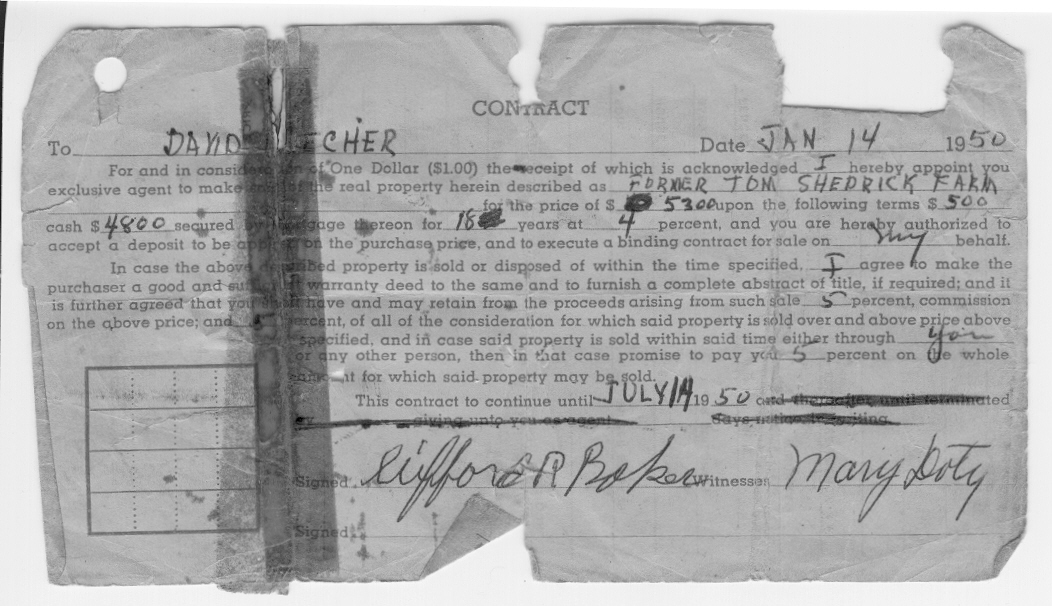 CONTRACT
To DAVID ECHER Date JAN 14 1950
For and in of One Dollar ($1.00) the receipt of which is acknowledged I hereby appoint you
exclusive agent to make of the real property herein described as FORMER TOM SHEDRICK FARM
for the price of $ 5300 upon the following terms $ 500
cash $ 4800 secured by thereon for 18 years at 4 percent, and you are hereby authorized to
accept a deposit to be on the purchase price, and to execute a binding contract for sale on my behalf.
In case the above property is sold or disposed of within the time specified, I agree to make the
purchaser a good and warranty deed to the same and to furnish a complete abstract of title, if required; and it
is further agreed that you have and may retain from the proceeds arising from such sale 5 percent, commission
on the above price; and 5 percent, of all of the consideration for which said property is sold over and above price above
specified, and in case said property is sold within said time either through you
or any other person, then in that case promise to pay you 5 percent on the whole
amount for which said property may be sold.
This contract to continue until JULY 14 1950 and thereafter until terminated
by giving unto you as agent days notice in writing.
Signed Clifford R Baker Witnesses Mary Doty
Signed